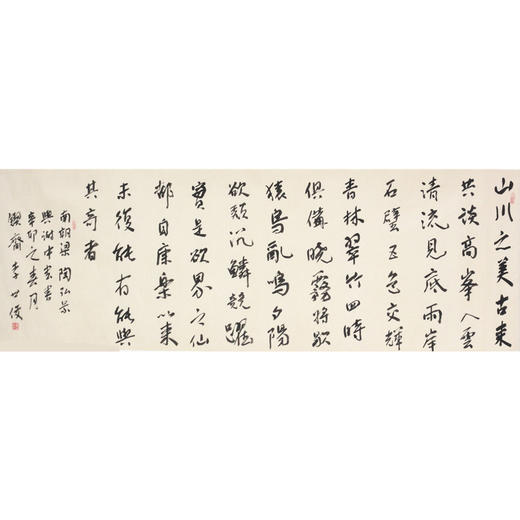 山川之美古来
共谈高峯入雲
清流見底兩岸
石壁五色交輝
青林翠竹四時
俱備曉霧將歇
猿鳥亂鳴夕陽
欲頹沉鱗競躍
實是欲界之仙
都自康樂以來
未復能有能與
其奇者
南朝梁陶弘景
與謝中書書
辛卯之春月
鍥齋李世俊